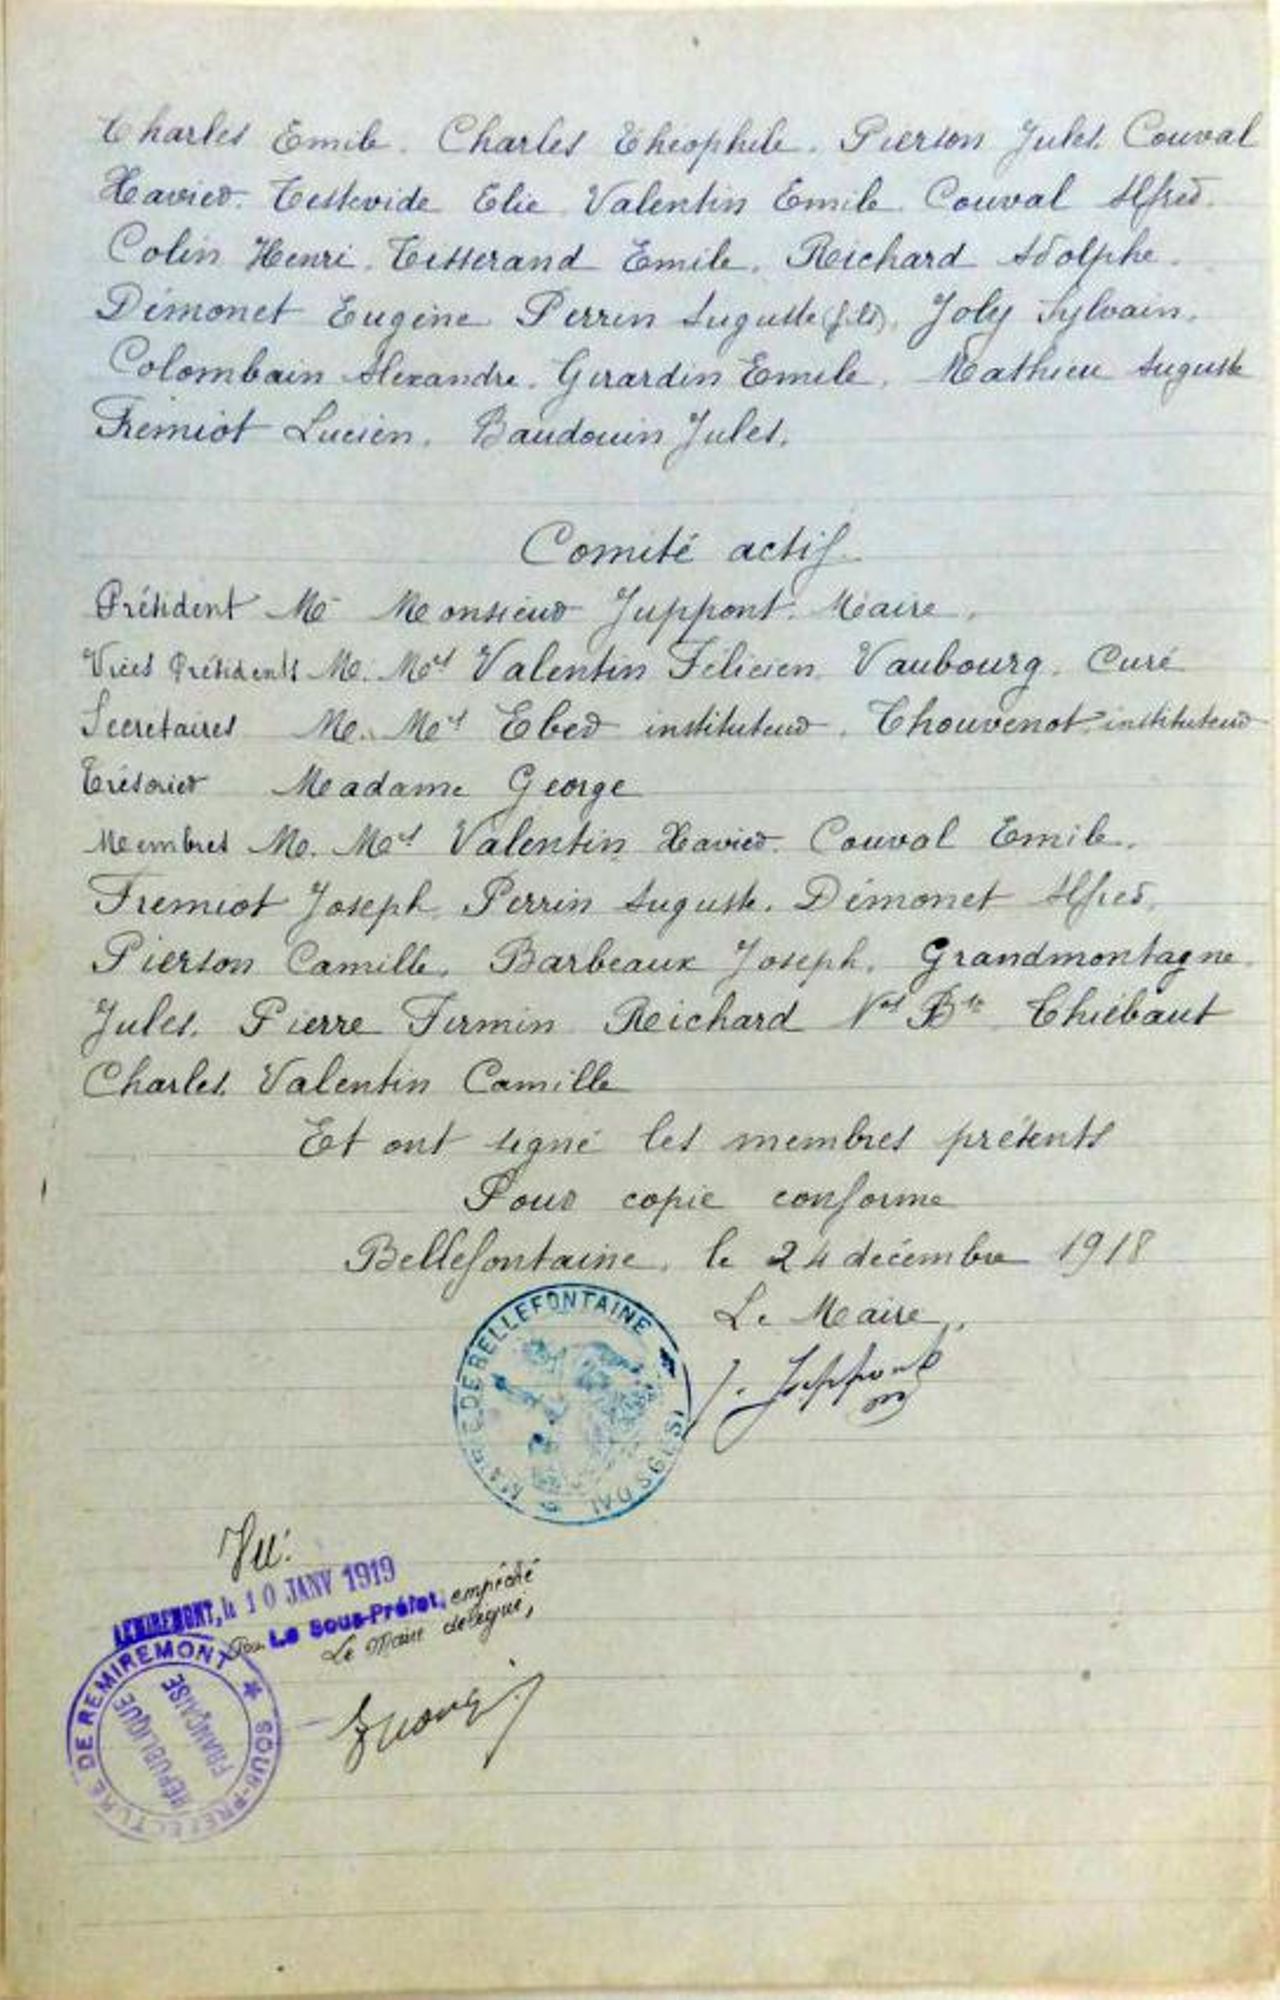 Charles Emile. Charles Théophile. Pierson Jules. Couval
Xavier. Testevide Elie. Valentin Emile. Couval Alfred.
Colin Henri. Tisserand Emile. Reichard Adolphe.
Démonet Eugène. Perrin Auguste (fils). Joly Sylvain.
Colombain Alexandre. Girardin Emile. Mathieu Auguste
Fremiot Lucien. Baudouin Jules.
Comité actif
Président M Monsieur Juppont. Maire.
Vices Présidents M. Mrs Valentin Félicien, Vaubourg. Curé
Secretaires M. Mrs Eber instituteur. Thouvenot instituteur
Trésorier Madame George
Membres M. Mrs Valentin Xavier. Couval Emile.
Fremiot Joseph. Perrin Auguste. Démonet Alfred.
Pierson Camille. Barbeaux Joseph. Grandmontagne
Jules. Pierre Firmin Reichard Nas Bte Thiébaut
Charles. Valentin Camille
Et ont signé les membres présents
Pour copie conforme
Bellefontaine, le 24 décembre 1918
Le Maire,
J. Juppont
MAIRIE DE BELLEFONTAINE
(VOSGES)
Vu:
REMIREMONT, le 10 JANV 1919
Pour Le Sous-Préfet, empêché
Le Maire délégué,
SOUS-PRÉFECTURE DE REMIREMONT
RÉPUBLIQUE
FRANÇAISE